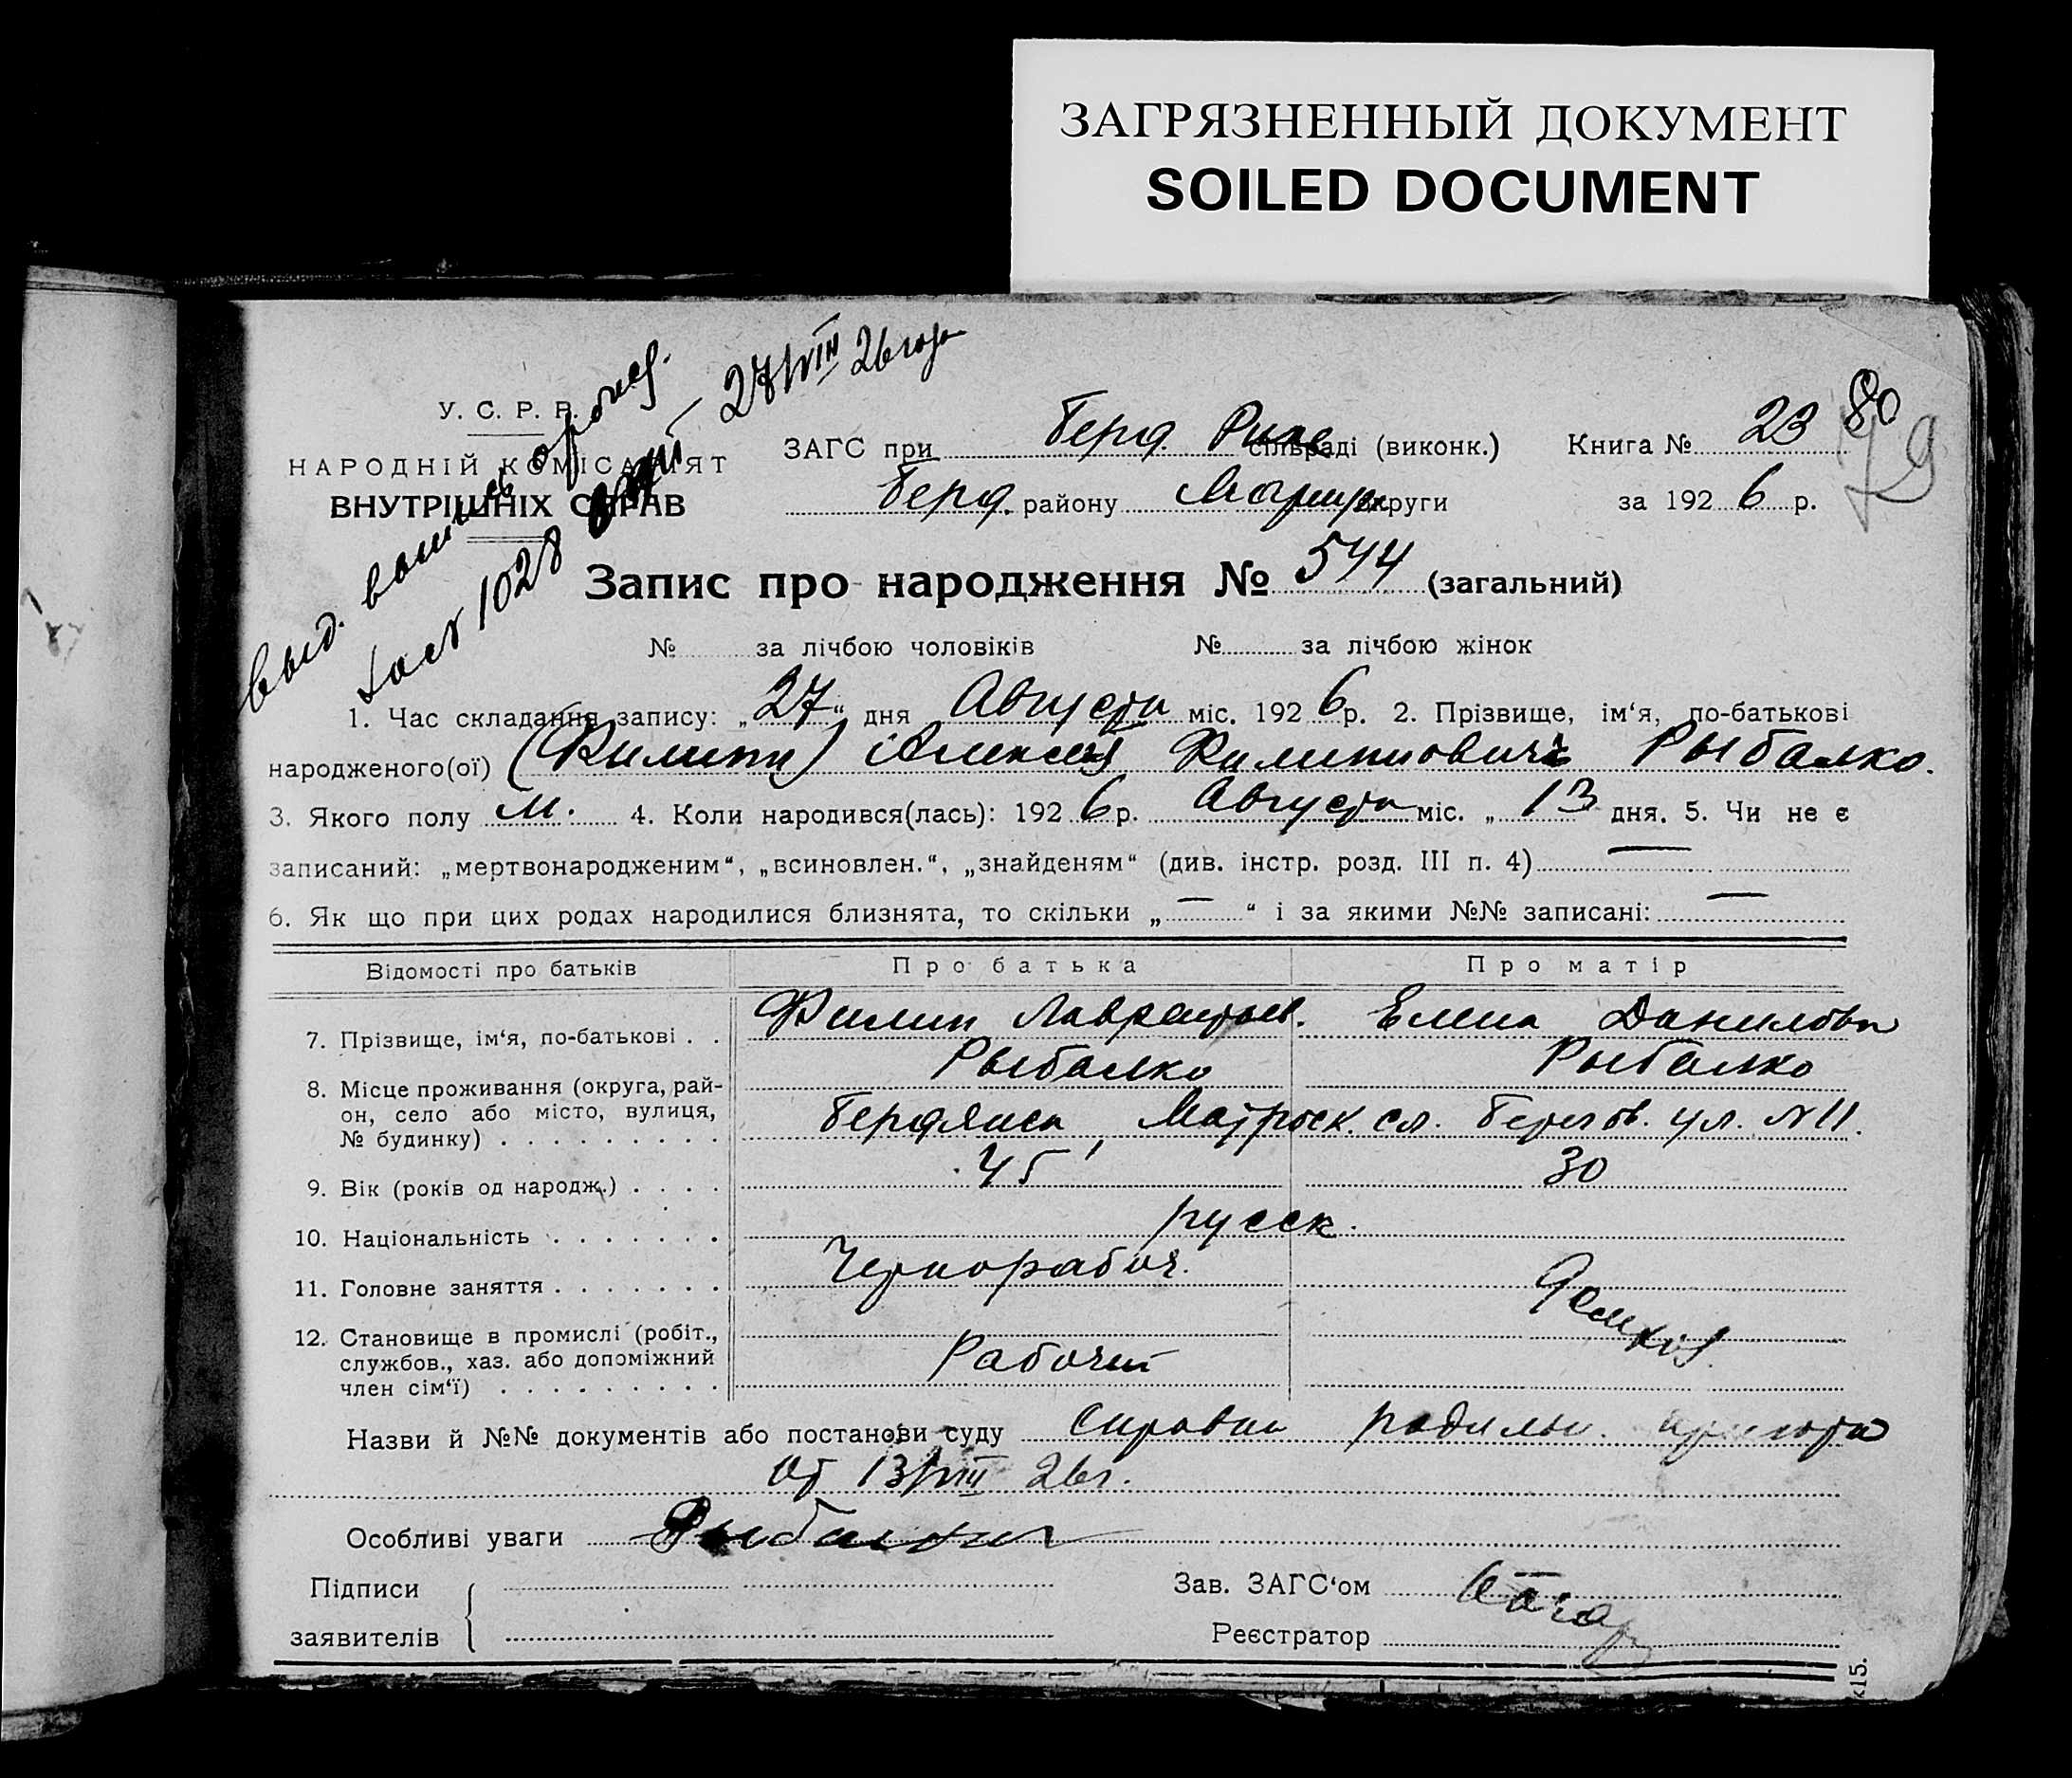 ЗАГРЯЗНЕННЫЙ ДОКУМЕНТ
SOILED DOCUMENT
27/VIII 26 года
80
79
У. С. Р. Р.
НАРОДНІЙ КОМІСАРІЯТ
ВНУТРІШНІХ СПРАВ
выд.
1028
ЗАГС при Берд. Рике сільраді (виконк.) Книга № 23
Берд. району Мариуп. округи за 1926 р.
Запис про народження № 544 (загальний)
№ за лічбою чоловіків № за лічбою жінок
1. Час складання запису: „27“ дня Августа міс. 1926 р. 2. Прізвище, ім‘я, по-батькові
народженого(ої) (Филипп) Алексей Филиппович Рыбалко.
3. Якого полу м. 4. Коли народився(лась): 1926 р. Августа міс. „13 дня. 5. Чи не є
записаний: „мертвонародженим“, „всиновлен.“, „знайденям“ (див. інстр. розд. III п. 4) —
6. Як що при цих родах народилися близнята, то скільки „—“ і за якими №№ записані: —
Відомості про батьків Про батька Про матір
7. Прізвище, ім‘я, по-батькові . . Филип Лаврентьев. Елена Данилова
Рыбалко Рыбалко
8. Місце проживання (округа, рай-
он, село або місто, вулиця,
№ будинку) . . . . . . . . . Бердянск, Матроск. сл. Берегов. ул. № 11.
9. Вік (років од народж.) . . . . 45 30
10. Національність . . . . . . . русск.
11. Головне заняття . . . . . . . Чернорабоч. Домхоз.
12. Становище в промислі (робіт.,
службов., хаз. або допоміжний
член сім‘ї) . . . . . . . . . Рабочий
Назви й №№ документів або постанови суду Справка родильн. приюта
от 13/VIII 26 г.
Особливі уваги Рыбалко
Підписи
заявителів
Зав. ЗАГС‘ом
Реєстратор
к15.